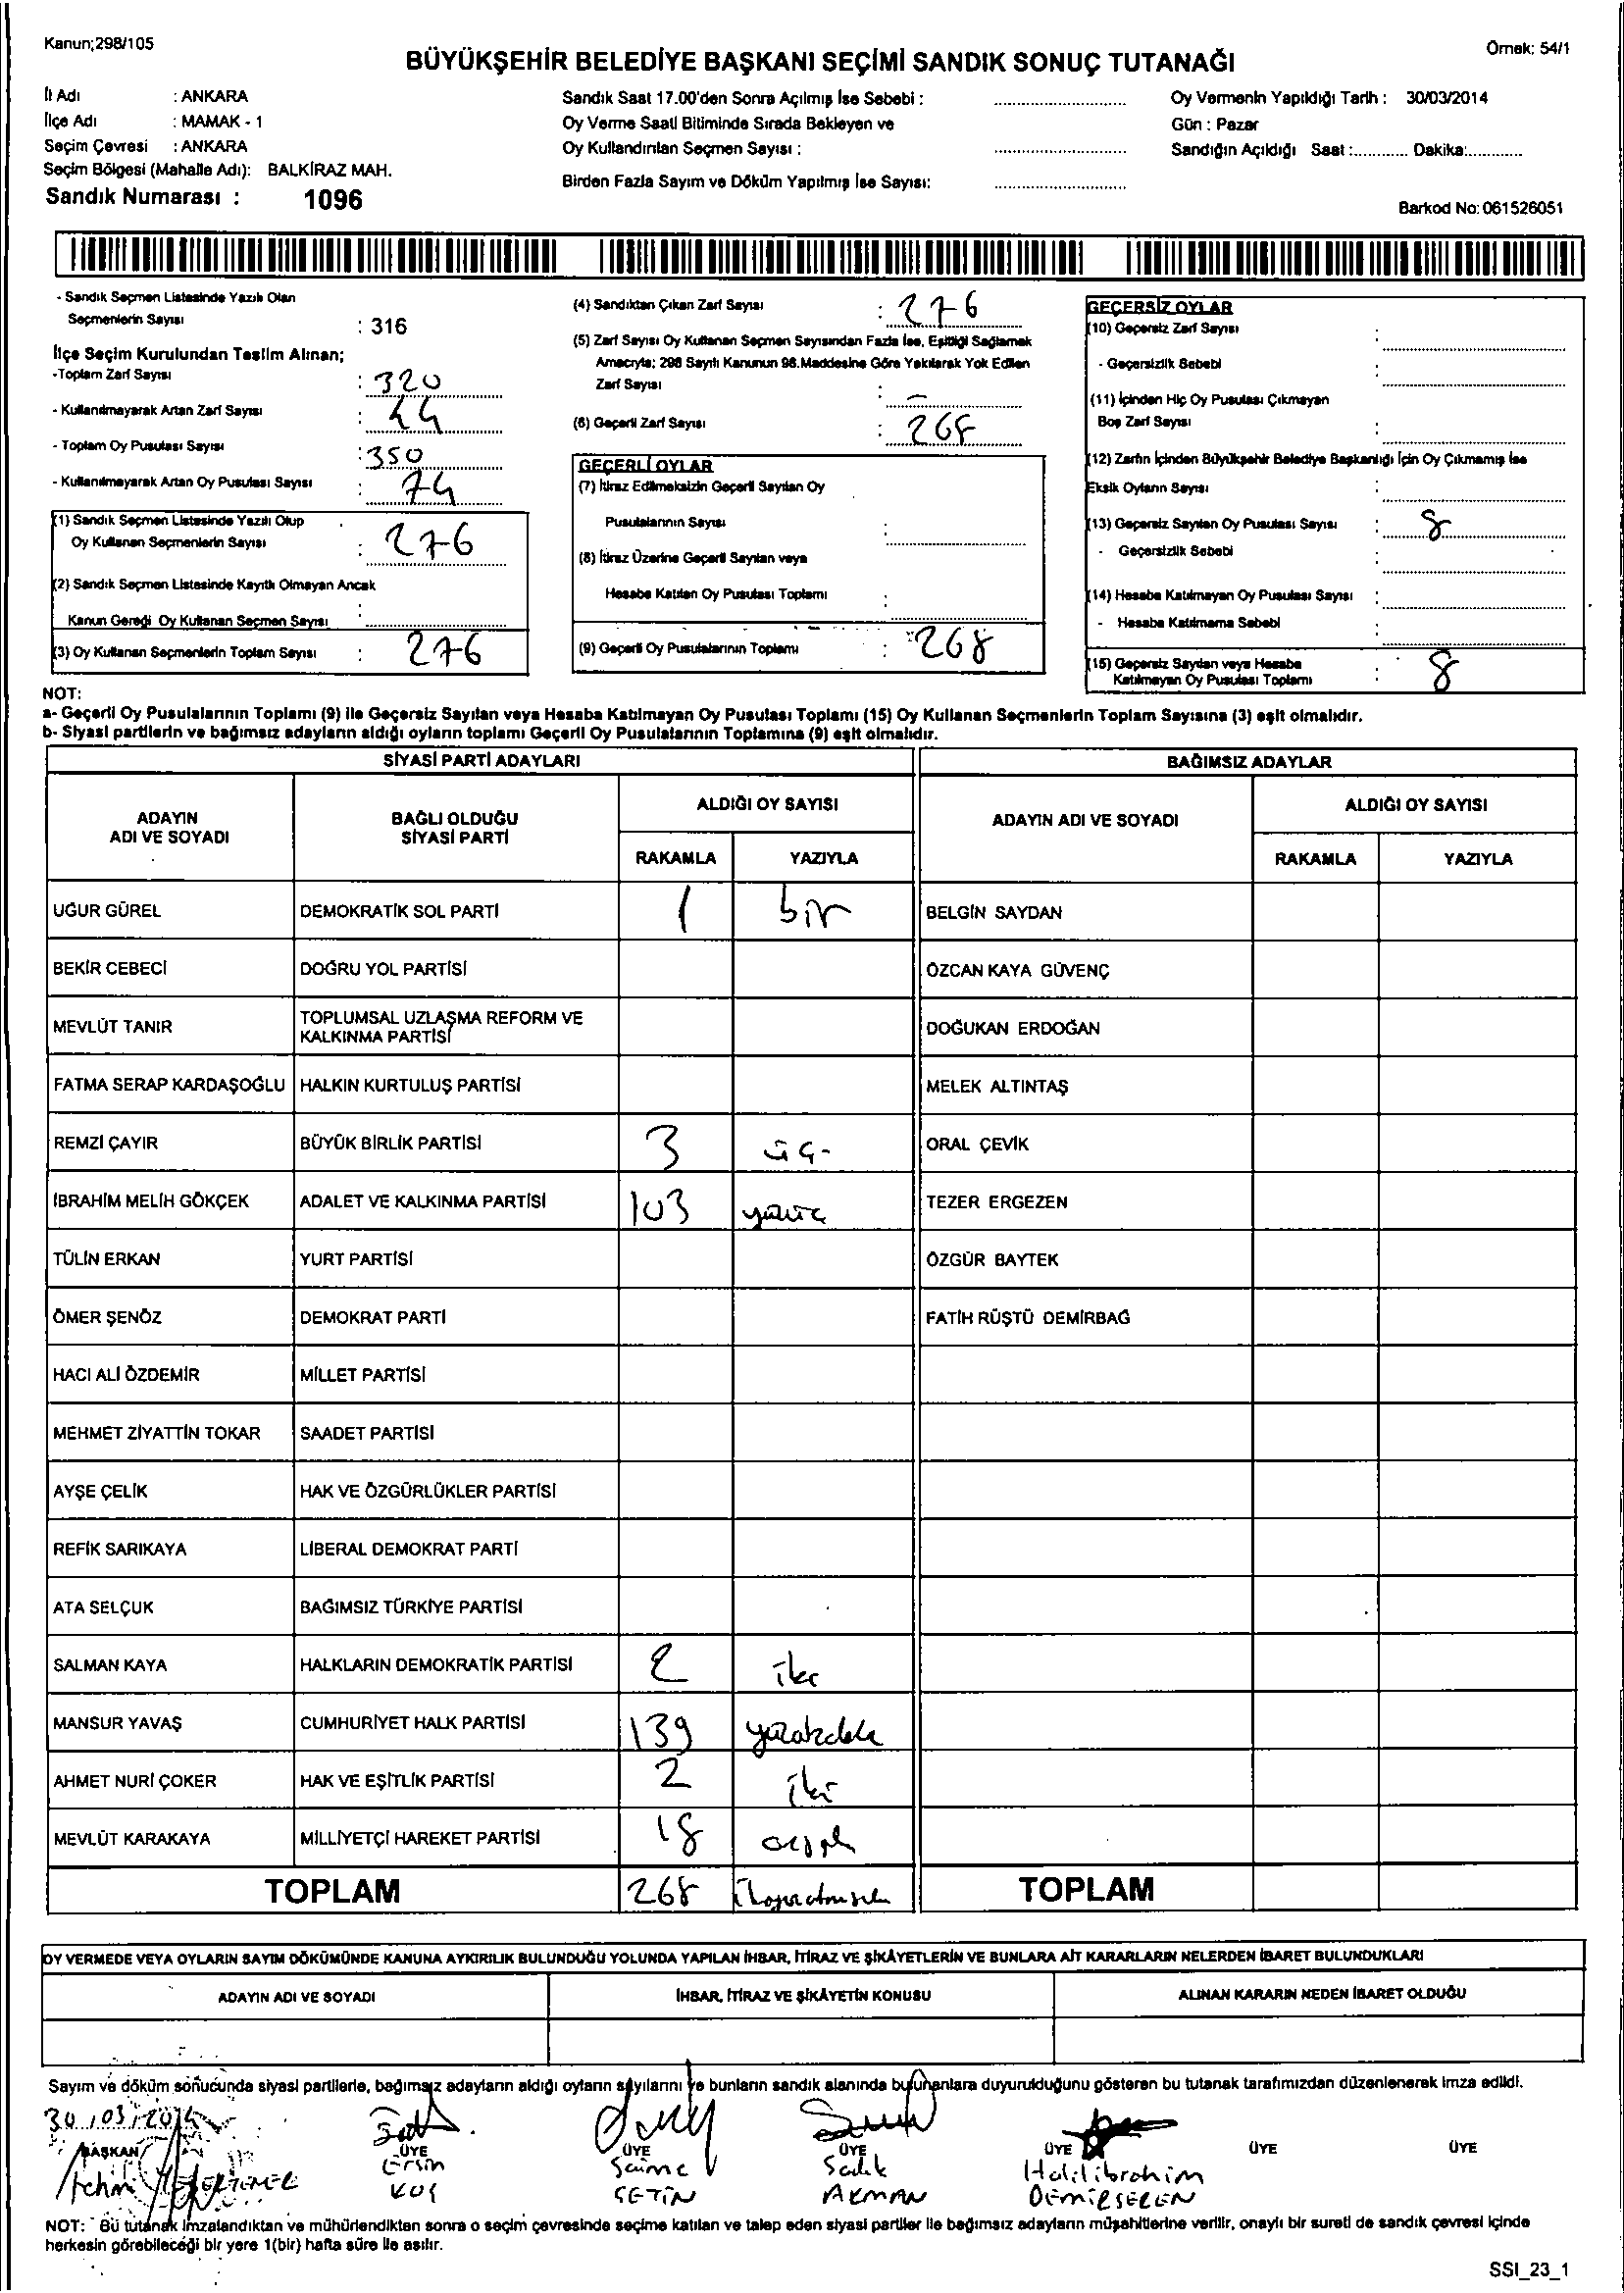 Kanun;298/105
BÜYÜKŞEHİR BELEDİYE BAŞKANI SEÇİMİ SANDIK SONUÇ TUTANAĞI
Örnek: 54/1
İl Adı : ANKARA
İlçe Adı : MAMAK - 1
Seçim Çevresi : ANKARA
Seçim Bölgesi (Mahalle Adı): BALKİRAZ MAH.
Sandık Numarası : 1096
Sandık Saat 17.00'den Sonra Açılmış İse Sebebi :
Oy Verme Saati Bitiminde Sırada Bekleyen ve
Oy Kullandırılan Seçmen Sayısı :
Birden Fazla Sayım ve Döküm Yapılmış İse Sayısı:
Oy Vermenin Yapıldığı Tarih : 30/03/2014
Gün : Pazar
Sandığın Açıldığı Saat :............ Dakika:............
Barkod No: 061526051
- Sandık Seçmen Listesinde Yazılı Olan
Seçmenlerin Sayısı : 316
İlçe Seçim Kurulundan Teslim Alınan;
-Toplam Zarf Sayısı : 320
- Kullanılmayarak Artan Zarf Sayısı : 44
- Toplam Oy Pusulası Sayısı : 350
- Kullanılmayarak Artan Oy Pusulası Sayısı : 74
(1) Sandık Seçmen Listesinde Yazılı Olup
Oy Kullanan Seçmenlerin Sayısı : 276
(2) Sandık Seçmen Listesinde Kayıtlı Olmayan Ancak
Kanun Gereği Oy Kullanan Seçmen Sayısı :
(3) Oy Kullanan Seçmenlerin Toplam Sayısı : 276
(4) Sandıktan Çıkan Zarf Sayısı : 276
(5) Zarf Sayısı Oy Kullanan Seçmen Sayısından Fazla İse, Eşitliği Sağlamak
Amacıyla; 298 Sayılı Kanunun 98.Maddesine Göre Yakılarak Yok Edilen
Zarf Sayısı : -
(6) Geçerli Zarf Sayısı : 268
GEÇERLİ OYLAR
(7) İtiraz Edilmeksizin Geçerli Sayılan Oy
Pusulalarının Sayısı :
(8) İtiraz Üzerine Geçerli Sayılan veya
Hesaba Katılan Oy Pusulası Toplamı :
(9) Geçerli Oy Pusulalarının Toplamı : 268
GEÇERSİZ OYLAR
(10) Geçersiz Zarf Sayısı :
- Geçersizlik Sebebi :
(11) İçinden Hiç Oy Pusulası Çıkmayan
Boş Zarf Sayısı :
(12) Zarfın İçinden Büyükşehir Belediye Başkanlığı İçin Oy Çıkmamış İse
Eksik Oyların Sayısı :
(13) Geçersiz Sayılan Oy Pusulası Sayısı : 8
- Geçersizlik Sebebi :
(14) Hesaba Katılmayan Oy Pusulası Sayısı :
- Hesaba Katılmama Sebebi :
(15) Geçersiz Sayılan veya Hesaba
Katılmayan Oy Pusulası Toplamı : 8
NOT:
a- Geçerli Oy Pusulalarının Toplamı (9) ile Geçersiz Sayılan veya Hesaba Katılmayan Oy Pusulası Toplamı (15) Oy Kullanan Seçmenlerin Toplam Sayısına (3) eşit olmalıdır.
b- Siyasi partilerin ve bağımsız adayların aldığı oyların toplamı Geçerli Oy Pusulalarının Toplamına (9) eşit olmalıdır.
SİYASİ PARTİ ADAYLARI BAĞIMSIZ ADAYLAR
ADAYIN ADI VE SOYADI BAĞLI OLDUĞU SİYASİ PARTİ ALDIĞI OY SAYISI ADAYIN ADI VE SOYADI ALDIĞI OY SAYISI
RAKAMLA YAZIYLA RAKAMLA YAZIYLA
UĞUR GÜREL DEMOKRATİK SOL PARTİ 1 bir BELGİN SAYDAN
BEKİR CEBECİ DOĞRU YOL PARTİSİ ÖZCAN KAYA GÜVENÇ
MEVLÜT TANIR TOPLUMSAL UZLAŞMA REFORM VE KALKINMA PARTİSİ DOĞUKAN ERDOĞAN
FATMA SERAP KARDAŞOĞLU HALKIN KURTULUŞ PARTİSİ MELEK ALTINTAŞ
REMZİ ÇAYIR BÜYÜK BİRLİK PARTİSİ 3 üç- ORAL ÇEVİK
İBRAHİM MELİH GÖKÇEK ADALET VE KALKINMA PARTİSİ 103 yüzüç TEZER ERGEZEN
TÜLİN ERKAN YURT PARTİSİ ÖZGÜR BAYTEK
ÖMER ŞENÖZ DEMOKRAT PARTİ FATİH RÜŞTÜ DEMİRBAĞ
HACI ALİ ÖZDEMİR MİLLET PARTİSİ
MEHMET ZİYATTİN TOKAR SAADET PARTİSİ
AYŞE ÇELİK HAK VE ÖZGÜRLÜKLER PARTİSİ
REFİK SARIKAYA LİBERAL DEMOKRAT PARTİ
ATA SELÇUK BAĞIMSIZ TÜRKİYE PARTİSİ
SALMAN KAYA HALKLARIN DEMOKRATİK PARTİSİ 2 iki
MANSUR YAVAŞ CUMHURİYET HALK PARTİSİ 139
AHMET NURİ ÇOKER HAK VE EŞİTLİK PARTİSİ 2 iki
MEVLÜT KARAKAYA MİLLİYETÇİ HAREKET PARTİSİ 18
TOPLAM 268 TOPLAM
OY VERMEDE VEYA OYLARIN SAYIM DÖKÜMÜNDE KANUNA AYKIRILIK BULUNDUĞU YOLUNDA YAPILAN İHBAR, İTİRAZ VE ŞİKÂYETLERİN VE BUNLARA AİT KARARLARIN NELERDEN İBARET BULUNDUKLARI
ADAYIN ADI VE SOYADI İHBAR, İTİRAZ VE ŞİKÂYETİN KONUSU ALINAN KARARIN NEDEN İBARET OLDUĞU
Sayım ve döküm sonucunda siyasi partilerle, bağımsız adayların aldığı oyların sayılarını ve bunların sandık alanında bulunanlara duyurulduğunu gösteren bu tutanak tarafımızdan düzenlenerek imza edildi.
30/03/2014
BAŞKAN ÜYE ÜYE ÜYE ÜYE ÜYE ÜYE
Ersin Saime Sadık Halil ibrahim
KOÇ ÇETİN AKMAN DEMİRSEREN
NOT: Bu tutanak imzalandıktan ve mühürlendikten sonra o seçim çevresinde seçime katılan ve talep eden siyasi partiler ile bağımsız adayların müşahitlerine verilir, onaylı bir sureti de sandık çevresi içinde
herkesin görebileceği bir yere 1(bir) hafta süre ile asılır.
SSI_23_1